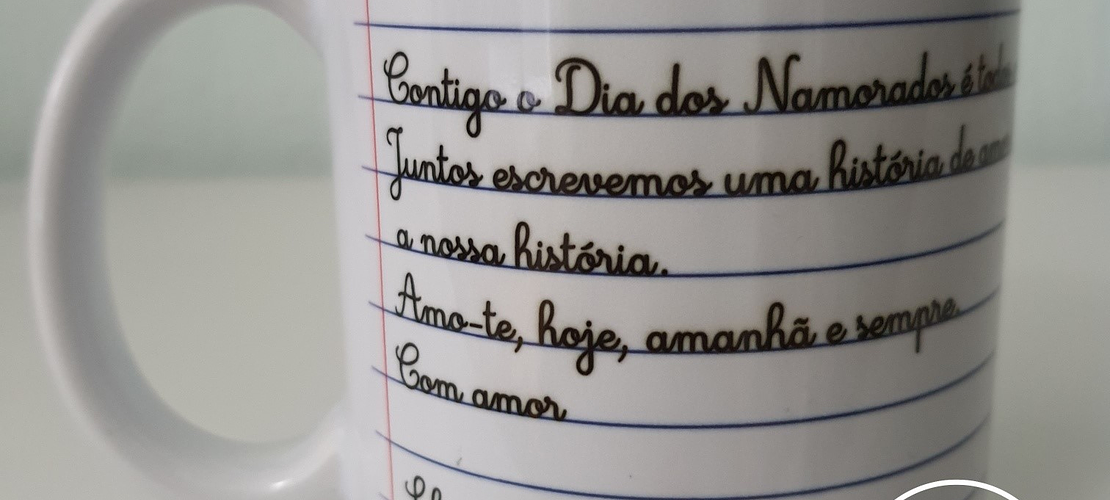 Contigo o Dia dos Namorados é
Juntos escrevemos uma história de
a nossa história.
Amo-te, hoje, amanhã e sempre.
Com amor